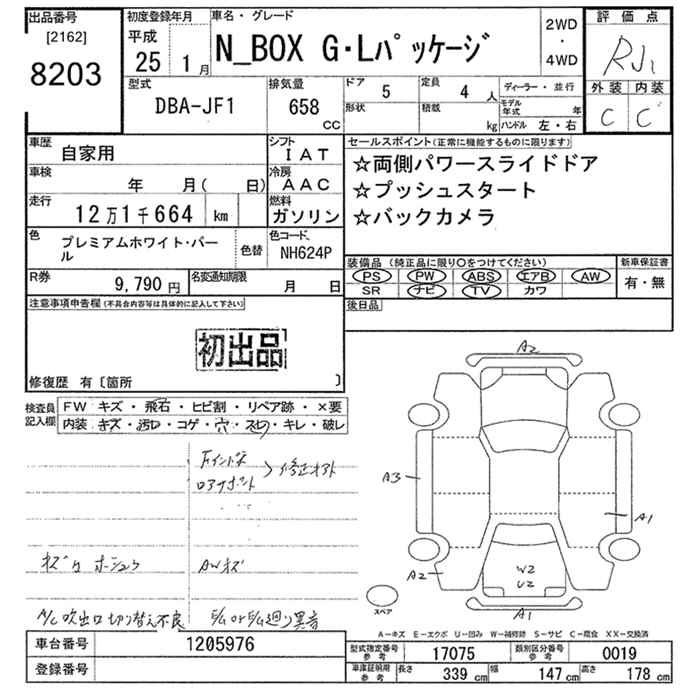 出品番号
[2162]
8203
初度登録年月
平成
25 1月
車名・グレード
N_BOX G・Lパッケージ
2WD
・
4WD
評価点
RJ1
型式
DBA-JF1
排気量
658
cc
ドア
5
定員
4 人
形状
積載
kg
ディーラー・並行
モデル年式 年
ハンドル 左・右
外装 内装
C C
車歴
自家用
シフト
IAT
車検
年 月( 日)
冷房
AAC
走行
12万1千664 km
燃料
ガソリン
色
プレミアムホワイト・パール
色替
色コード
NH624P
R券
9,790 円
名変通知期限
月 日
セールスポイント(正常に機能するものに限ります)
☆両側パワースライドドア
☆プッシュスタート
☆バックカメラ
装備品(純正品に限り○をつけてください)
PS PW ABS エアB AW
SR ナビ TV カワ
新車保証書
有・無
後日品
注意事項申告欄(不具合内容等は具体的に記入して下さい)
初出品
修復歴 有〔箇所 〕
検査員
記入欄
FW キズ・飛石・ヒビ割・リペア跡・×要
内装 キズ・汚れ・コゲ・穴・スレ・キレ・破レ
修正
AWキズ
A/C吹出口切り替え不良
異音
A2
A3
A1
A2
W2
U2
A1
スペア
A－キズ E－エクボ U－凹み W－補修跡 S－サビ C－腐食 XX－交換済
車台番号 1205976
登録番号
型式指定番号
参考
17075
類別区分番号
参考
0019
車庫証明用
参考
長さ 339 cm 幅 147 cm 高さ 178 cm